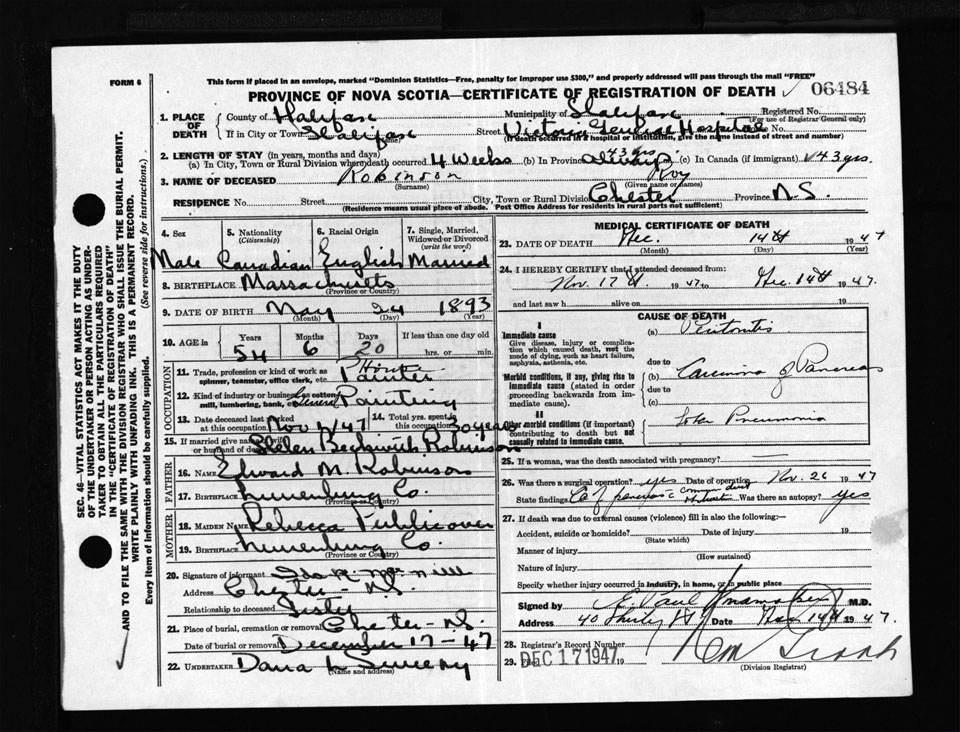 FORM 6
This form if placed in an envelope, marked "Dominion Statistics—Free, penalty for improper use $300," and properly addressed will pass through the mail "FREE"
PROVINCE OF NOVA SCOTIA—CERTIFICATE OF REGISTRATION OF DEATH
06484
1. PLACE OF DEATH
County of Halifax Municipality of Halifax Registered No.
(For use of Registrar General only)
If in City or Town Halifax Street Victoria General Hospital No.
(Name) (If death occurred in a hospital or institution, give the name instead of street and number)
2. LENGTH OF STAY (in years, months and days)
(a) In City, Town or Rural Division where death occurred 4 Weeks (b) In Province 43 yrs. always (c) In Canada (if immigrant) 43 yrs.
3. NAME OF DECEASED Robinson Roy
(Surname) (Given name or names)
RESIDENCE No. Street City, Town or Rural Division Chester Province N.S.
(Residence means usual place of abode. Post Office Address for residents in rural parts not sufficient)
4. Sex 5. Nationality (Citizenship) 6. Racial Origin 7. Single, Married, Widowed or Divorced (write the word)
Male Canadian English Married
8. BIRTHPLACE Massachusetts
(Province or Country)
9. DATE OF BIRTH May 24 1893
(Month) (Day) (Year)
10. AGE in Years Months Days If less than one day old
54 6 20 hrs. or min.
OCCUPATION
11. Trade, profession or kind of work as spinner, teamster, office clerk, etc. House Painter
12. Kind of industry or business, as cotton mill, lumbering, bank, etc. General Painting
13. Date deceased last worked at this occupation Nov 1/47 14. Total yrs. spent in this occupation 30 years
15. If married give name of wife or husband of deceased Helen Beckwith Robinson
FATHER
16. Name Edward M. Robinson
17. Birthplace Lunenburg Co.
(Province or Country)
MOTHER
18. Maiden Name Rebecca Publicover
19. Birthplace Lunenburg Co.
(Province or Country)
20. Signature of informant Ida R. McNeill
Address Chester - N.S.
Relationship to deceased Sister
21. Place of burial, cremation or removal Chester - N.S.
Date of burial or removal December 17 - 47
22. UNDERTAKER Dana L. Sweeny
(Name and address)
MEDICAL CERTIFICATE OF DEATH
23. DATE OF DEATH Dec. 14th 1947
(Month) (Day) (Year)
24. I HEREBY CERTIFY that I attended deceased from:
Nov. 17th 1947 to Dec. 14th 1947.
and last saw h alive on 19
CAUSE OF DEATH
I
Immediate cause
Give disease, injury or complication which caused death, not the mode of dying, such as heart failure, asphyxia, asthenia, etc.
(a) Peritonitis
due to
Morbid conditions, if any, giving rise to immediate cause (stated in order proceeding backwards from immediate cause).
(b) Carcinoma of Pancreas
due to
(c)
II
Other morbid conditions (if important) contributing to death but not causally related to immediate cause.
Lobar Pneumonia
25. If a woman, was the death associated with pregnancy? —
26. Was there a surgical operation? yes Date of operation Nov. 26 1947
State findings Ca of pancreas c common duct obstruction Was there an autopsy? yes
27. If death was due to external causes (violence) fill in also the following:—
Accident, suicide or homicide? Date of injury 19
(State which)
Manner of injury
(How sustained)
Nature of injury
Specify whether injury occurred in industry, in home, or in public place
Signed by E. Paul M.D.
Address 40 Date Dec 14th 1947.
28. Registrar's Record Number
29. Filed DEC 17 1947 19
(Division Registrar)
SEC. 46—VITAL STATISTICS ACT MAKES IT THE DUTY
OF THE UNDERTAKER OR PERSON ACTING AS UNDERTAKER TO OBTAIN ALL THE PARTICULARS REQUIRED
IN THE "CERTIFICATE OF REGISTRATION OF DEATH"
AND TO FILE THE SAME WITH THE DIVISION REGISTRAR WHO SHALL ISSUE THE BURIAL PERMIT.
WRITE PLAINLY WITH UNFADING INK. THIS IS A PERMANENT RECORD.
Every item of Information should be carefully supplied. (See reverse side for instructions.)